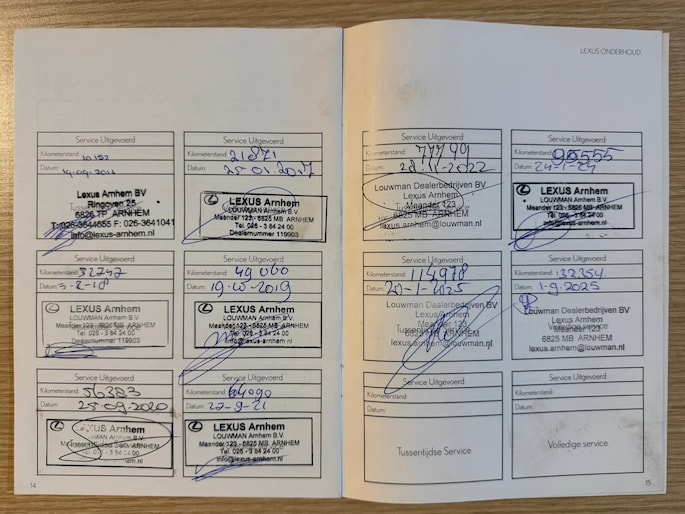 LEXUS ONDERHOUD
Service Uitgevoerd
Kilometerstand: 10.152
Datum:
Lexus Arnhem BV
Ringoven 25
6826 TP ARNHEM
T: 026-3644655 F: 026-3641041
info@lexus-arnhem.nl
Service Uitgevoerd
Kilometerstand: 21871
Datum: 25.01.2017
LEXUS Arnhem
LOUWMAN Arnhem B.V.
Meander 123 - 6825 MB ARNHEM
Tel. 026 - 3 64 24 00
Dealernummer 119903
Service Uitgevoerd
Kilometerstand: 32747
Datum: 3-2-18
LEXUS Arnhem
LOUWMAN Arnhem B.V.
Meander 123 - 6825 MB ARNHEM
Tel. 026 - 3 64 24 00
Dealernummer 119903
Service Uitgevoerd
Kilometerstand: 49000
Datum: 19-10-2019
LEXUS Arnhem
LOUWMAN Arnhem B.V.
Meander 123 - 6825 MB ARNHEM
Tel. 026 - 3 64 24 00
info@lexus-arnhem.nl
Service Uitgevoerd
Kilometerstand: 56383
Datum: 25-09-2020
LEXUS Arnhem
LOUWMAN Arnhem B.V.
Service Uitgevoerd
Kilometerstand: 64090
Datum: 27-9-21
LEXUS Arnhem
LOUWMAN Arnhem B.V.
Meander 123 - 6825 MB ARNHEM
Tel. 026 - 3 64 24 00
info@lexus-arnhem.nl
14
Service Uitgevoerd
Kilometerstand: 77799
Datum: 28-11-2022
Louwman Dealerbedrijven BV
Lexus Arnhem
Meander 123
6825 MB ARNHEM
lexus.arnhem@louwman.nl
Service Uitgevoerd
Kilometerstand: 95555
Datum: 24-1-24
LEXUS Arnhem
LOUWMAN Arnhem B.V.
Meander 123 - 6825 MB ARNHEM
Tel. 026 - 3 64 24 00
info@lexus-arnhem.nl
Service Uitgevoerd
Kilometerstand: 114978
Datum: 20-1-2025
Louwman Dealerbedrijven BV
Lexus Arnhem
Tussentijdse Service
Meander 123
6825 MB ARNHEM
lexus.arnhem@louwman.nl
Service Uitgevoerd
Kilometerstand: 132354
Datum: 1-9-2025
Louwman Dealerbedrijven BV
Lexus Arnhem
Volledige service
Meander 123
6825 MB ARNHEM
lexus.arnhem@louwman.nl
Service Uitgevoerd
Kilometerstand:
Datum:
Tussentijdse Service
Service Uitgevoerd
Kilometerstand:
Datum:
Volledige service
15